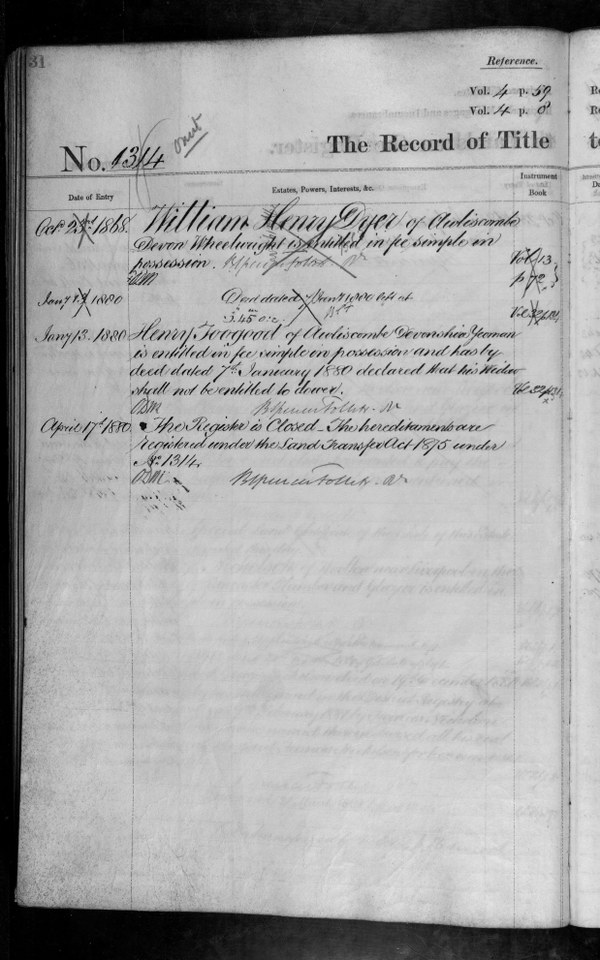 31
Reference.
Vol. 4 p. 59
Vol. 4 p. 8
The Record of Title
No. 1314
Date of Entry
Estates, Powers, Interests, &c.
Instrument
Book
Oct. 23rd 1868. William Henry Dyer of Awliscombe
Devon Wheelwright is entitled in fee simple in
possession. Vol 13
p 72
Jany 1880 Deed dated 7 Jany 1880 left at
3.45 o'c.
Jany 13. 1880 Henry Toogood of Awliscombe Devonshire Yeoman
is entitled in fee simple in possession and has by
deed dated 7th January 1880 declared that his Widow
shall not be entitled to dower.
BSpencer Follett. R
April 17th 1880. The Register is Closed. The hereditaments are
registered under the Land Transfer Act 1875 under
No. 1314.
BSpencer Follett. R